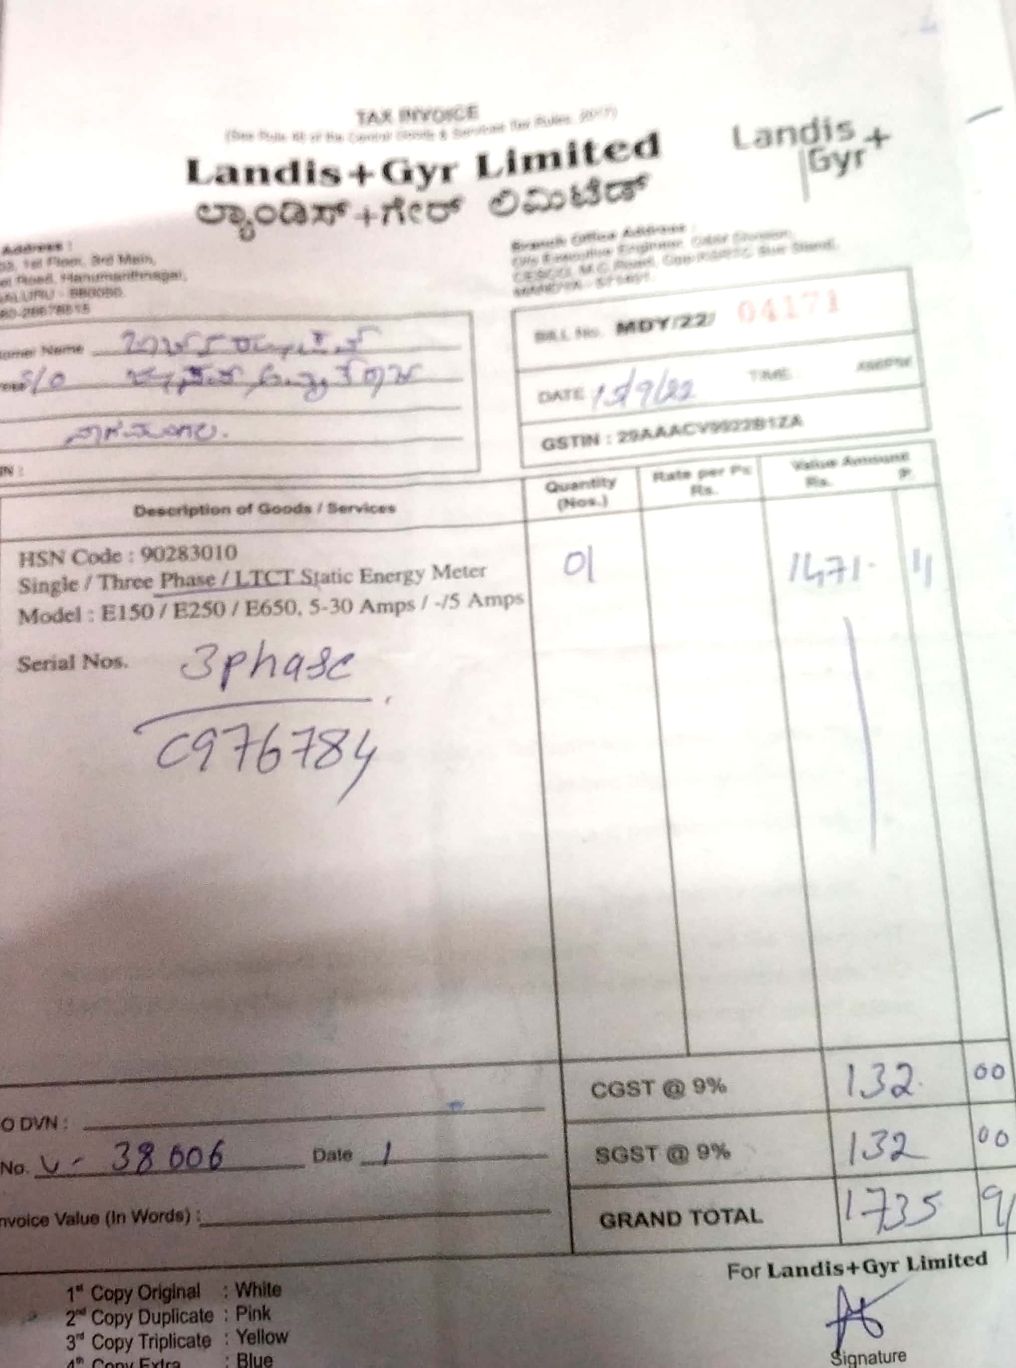 TAX INVOICE
(See Rule 46 of the Central Goods & Services Tax Rules, 2017)
Landis+Gyr Limited
ಲ್ಯಾಂಡಿಸ್+ಗೇರ್ ಲಿಮಿಟೆಡ್
Landis+
Gyr
Address :
1st Floor, 3rd Main,
Road, Hanumanthnagar,
ALURU - 560050.
80-26678615
Branch Office Address :
O/o Executive Engineer, Division,
CESCO, M.C. Road, Opp. KSRTC Bus Stand,
MANDYA - 571401.
omer Name
S/O
ನಾಗಮಂಗಲ.
IN :
BILL No. MDY/22/ 04171
DATE 15/9/22 TIME AM/PM
GSTIN : 29AAACV9922B1ZA
Description of Goods / Services
Quantity
(Nos.)
Rate per Pc
Rs.
Value Amount
Rs. P.
HSN Code : 90283010
Single / Three Phase / LTCT Static Energy Meter
Model : E150 / E250 / E650, 5-30 Amps / -/5 Amps
01 1471.
Serial Nos. 3phase
C976784
CGST @ 9% 132. 00
O DVN :
No. V - 38606 Date
SGST @ 9% 132 00
nvoice Value (In Words) :
GRAND TOTAL 1735
For Landis+Gyr Limited
1st Copy Original : White
2nd Copy Duplicate : Pink
3rd Copy Triplicate : Yellow
4th Copy Extra : Blue
Signature